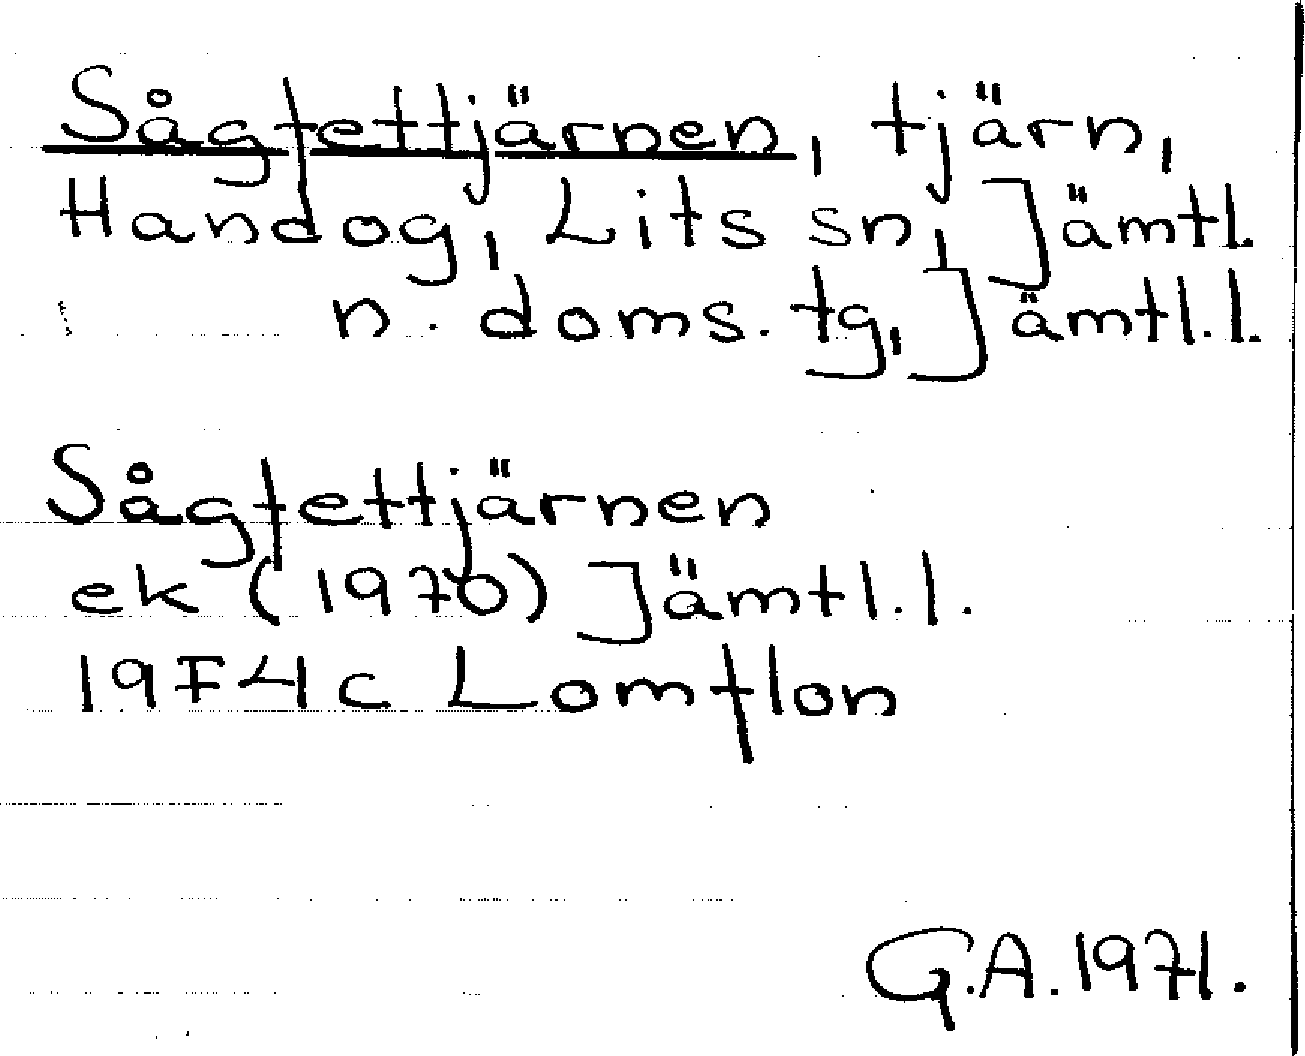 Sågfettjärnen, tjärn,
Handog, Lits sn, Jämtl.
n. doms. tg, Jämtl. l.
Sågfettjärnen
ek (1970) Jämtl. l.
19F4c Lomflon
G.A. 1971.